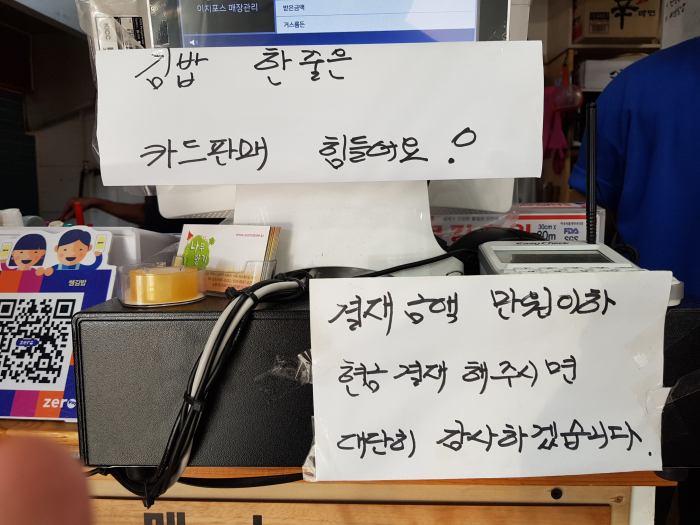 이지포스 매장관리
받은금액
거스름돈
김밥 한 줄은
카드판매 힘들어요!
나무
30cm x
30m
FDA
SGS
EasyCheck
쌍김밥
zero
zero
결재금액 만원이하
현금 결재 해주시면
대단히 감사하겠습니다.